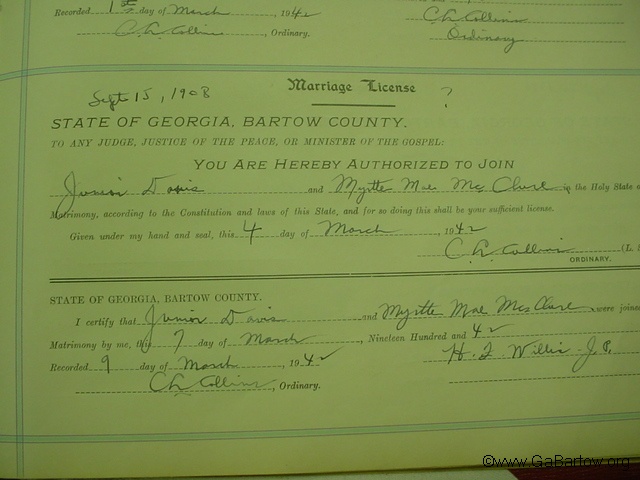 Recorded 1st day of March, 1942 C.A. Collins
C.A. Collins, Ordinary. Ordinary
Marriage License
Sept 15, 1908 ?
STATE OF GEORGIA, BARTOW COUNTY.
TO ANY JUDGE, JUSTICE OF THE PEACE, OR MINISTER OF THE GOSPEL:
YOU ARE HEREBY AUTHORIZED TO JOIN
Junior Davis and Myrtle Mae McClure in the Holy State o
Matrimony, according to the Constitution and laws of this State, and for so doing this shall be your sufficient license.
Given under my hand and seal, this 4 day of March, 1942
C.A. Collins (L. S
ORDINARY.
STATE OF GEORGIA, BARTOW COUNTY.
I certify that Junior Davis and Myrtle Mae McClure were joined
Matrimony by me, this 7 day of March, Nineteen Hundred and 42
Recorded 9 day of March, 1942 H. J. Willis J.P.
CA Collins, Ordinary.
©www.GaBartow.org